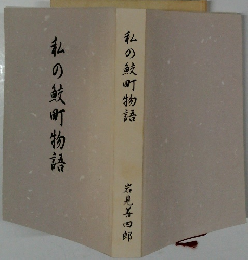 私の鮫町物語
私の鮫町物語
岩見善四郎